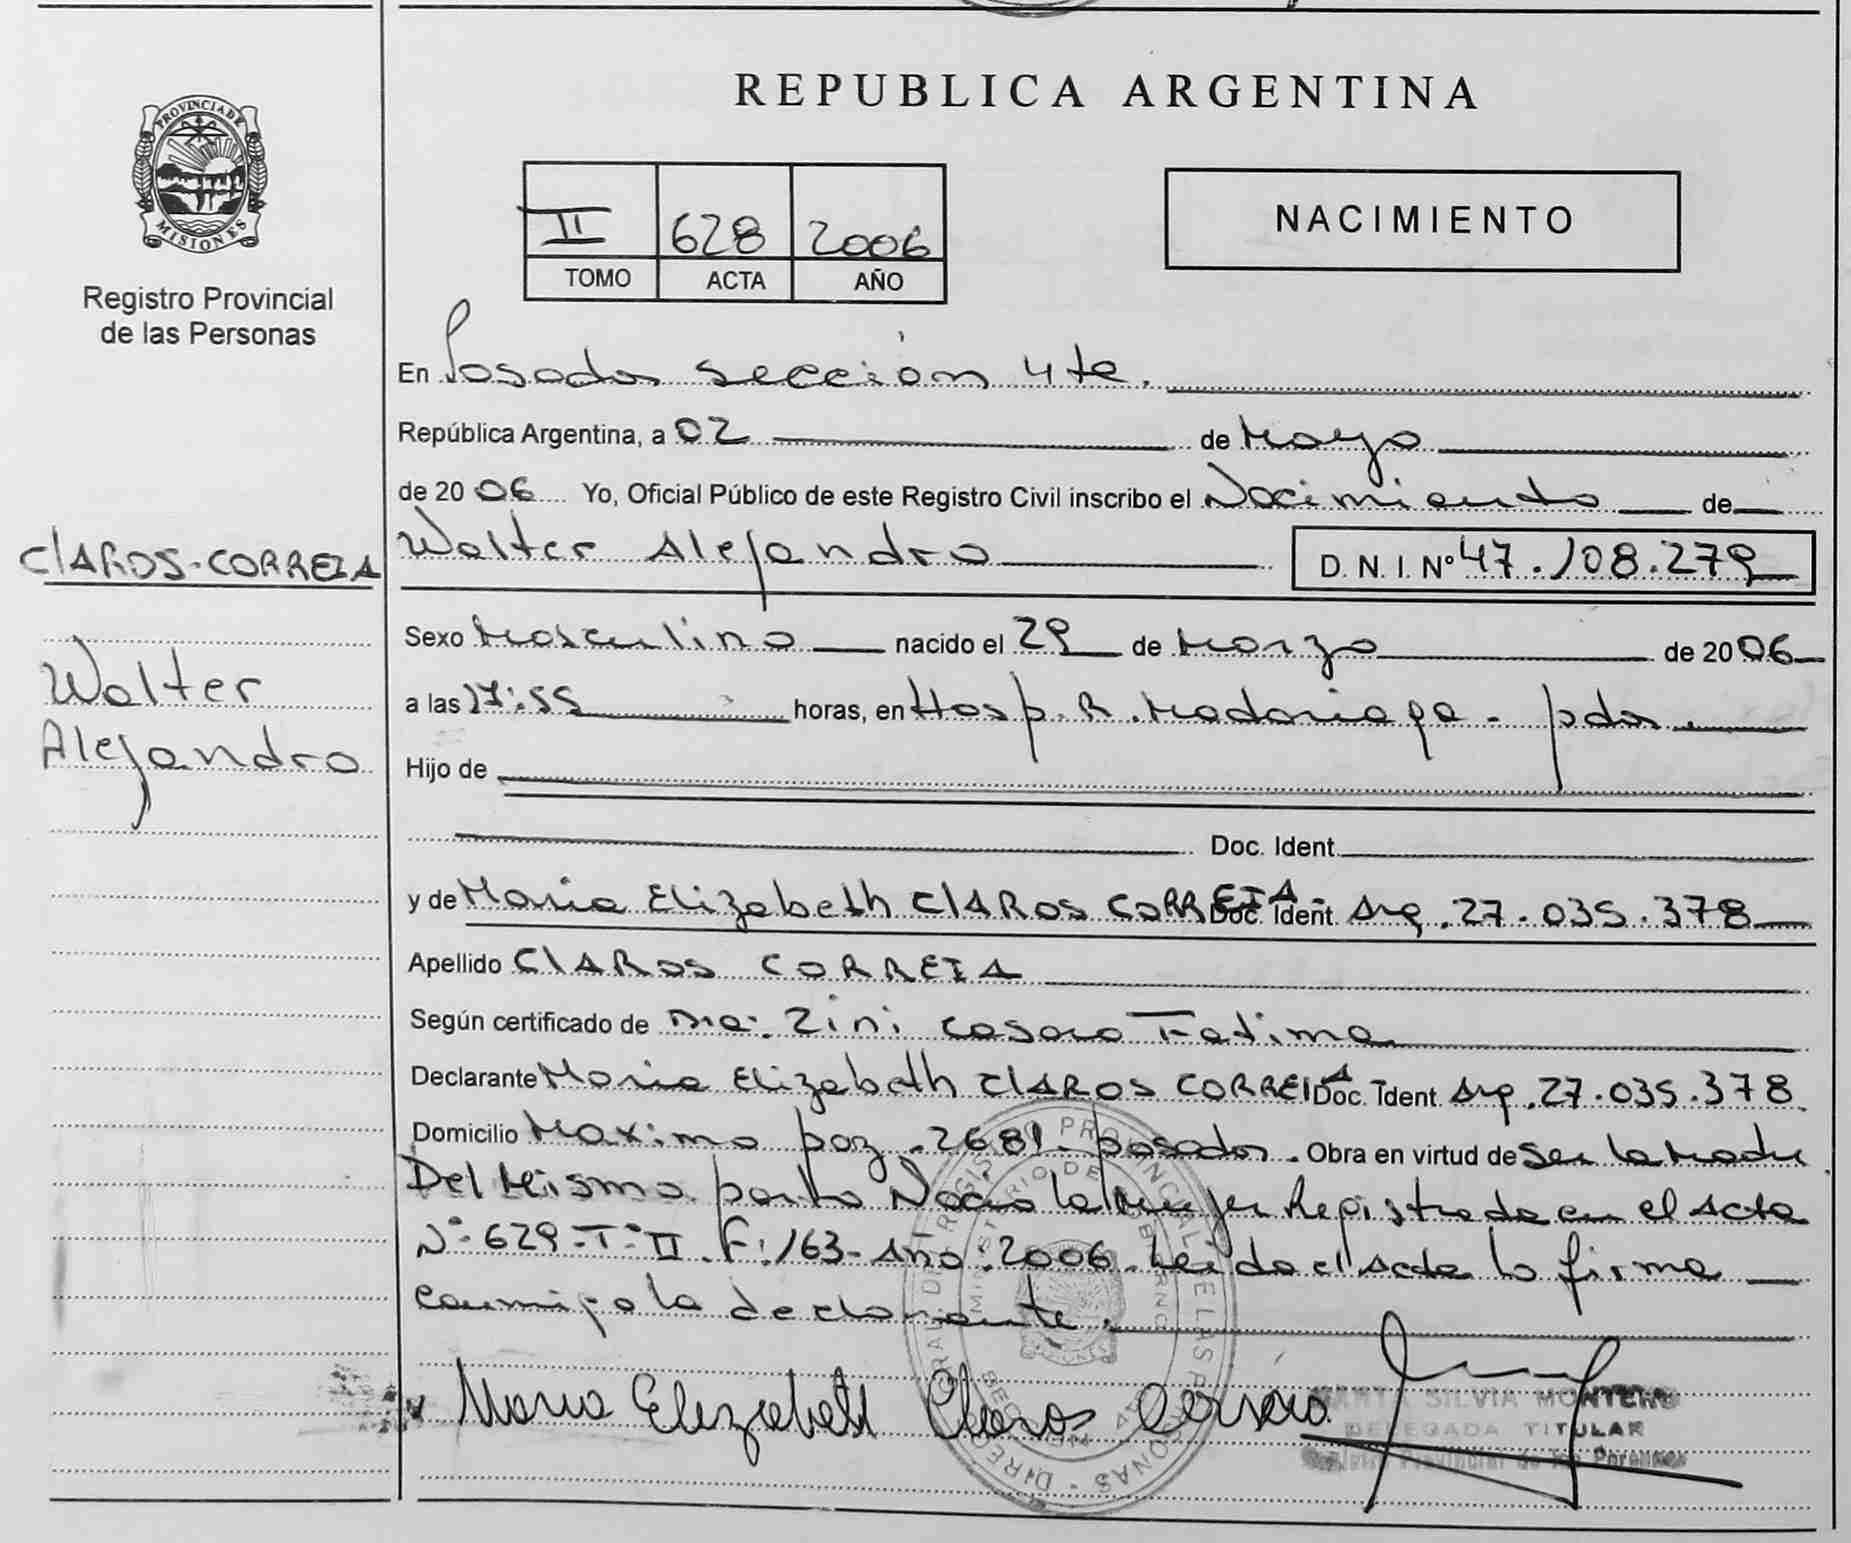 REPUBLICA ARGENTINA
PROVINCIA DE
MISIONES
Registro Provincial
de las Personas
II 628 2006
TOMO ACTA AÑO
NACIMIENTO
En Posadas sección 4ta.
República Argentina, a 02 de Mayo
de 2006 Yo, Oficial Público de este Registro Civil inscribo el Nacimiento de
CLAROS-CORREIA
Walter Alejandro D. N. I. Nº 47.108.279
Sexo Masculino nacido el 29 de Marzo de 2006
Walter
Alejandro
a las 17:55 horas, en Hosp. R. Madariaga - pdas.
Hijo de
Doc. Ident.
y de Maria Elizabeth CLAROS CORREIA- Doc. Ident. Arg. 27.035.378
Apellido CLAROS CORREIA
Según certificado de Dra. Zini Fatima
Declarante Maria Elizabeth CLAROS CORREIA Doc. Ident Arg. 27.035.378.
Domicilio Maximo paz. 2681 posadas. Obra en virtud de Ser la Madre
Del Mismo. parto Nacio la Mujer Registrada en el Acta
Nº 629-Tº II. F: 163- Año: 2006. Leida el Acta la firma
conmigo la declarante.
Maria Elizabeth Claros Correia
MARTA SILVIA MONTERO
DELEGADA TITULAR
Registro Provincial de las Personas